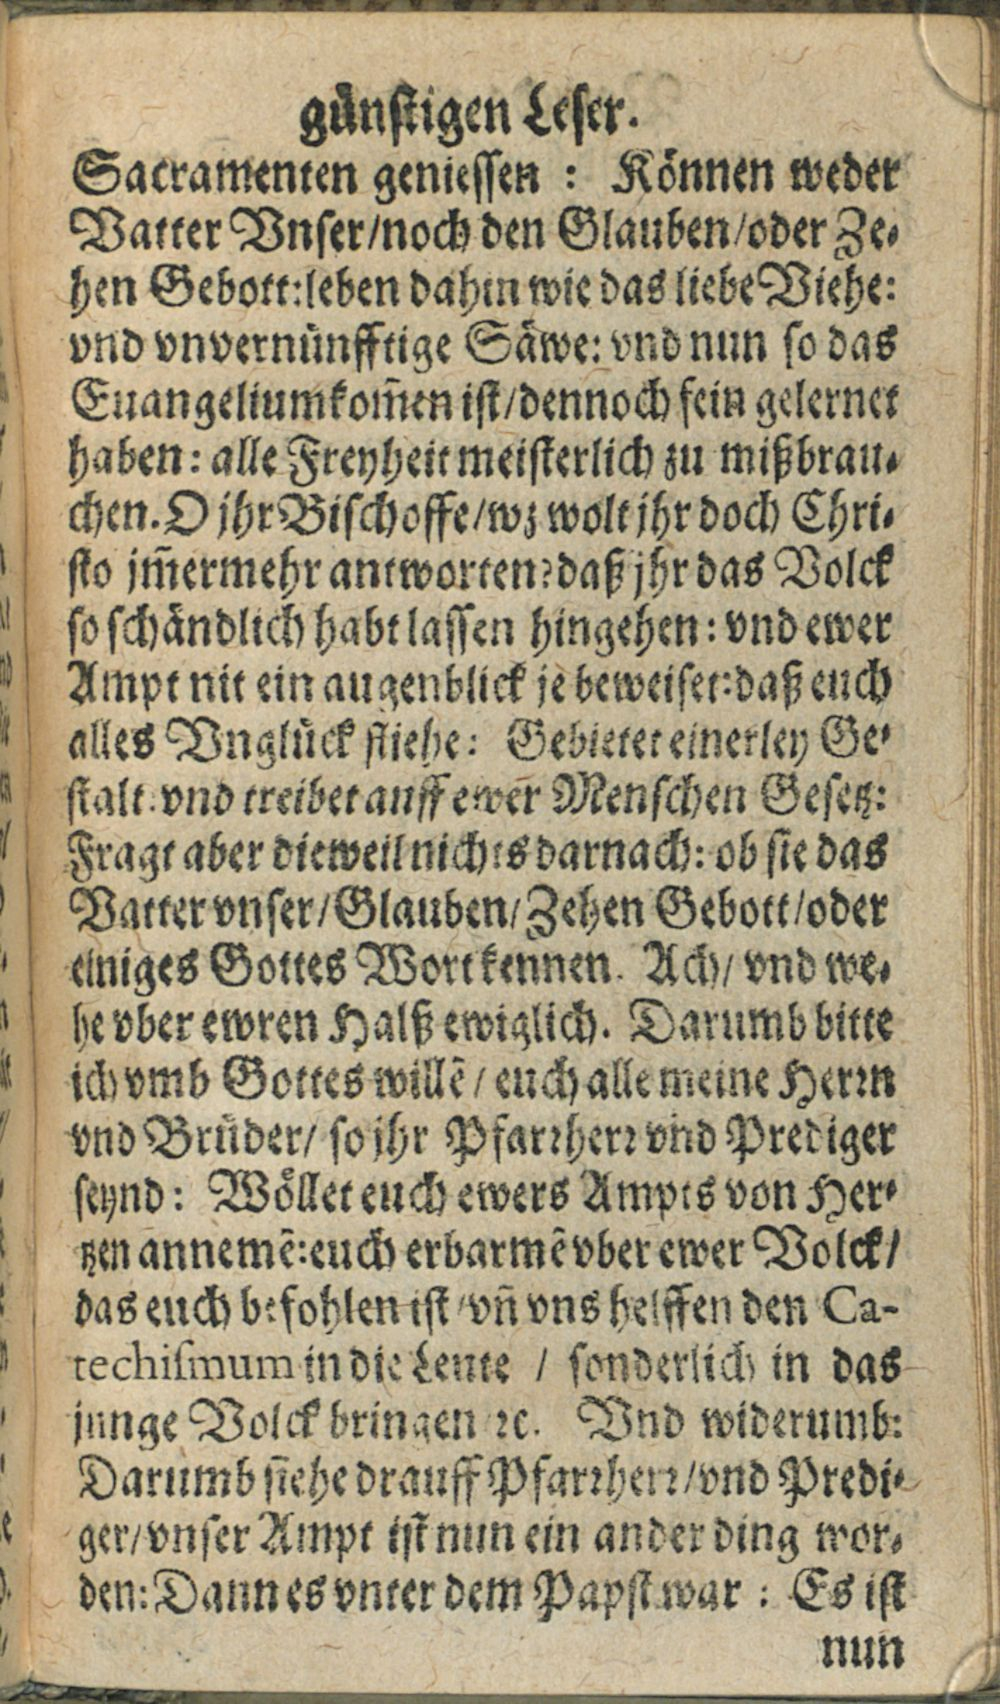 günstigen Leser.
Sacramenten geniessen : Können weder
Vatter Vnser/noch den Glauben/oder Ze-
hen Gebott:leben dahin wie das liebe Viehe:
vnd vnvernünfftige Säwe: vnd nun so das
Euangelium kom̃en ist/dennoch fein gelernet
haben: alle Freyheit meisterlich zu mißbrau-
chen. O jhr Bischoffe/wz wolt jhr doch Chri-
sto jm̃ermehr antworten? daß jhr das Volck
so schändlich habt lassen hingehen: vnd ewer
Ampt nit ein augenblick je beweiset: daß euch
alles Vnglück fliehe: Gebietet einerley Ge-
stalt: vnd treibet auff ewer Menschen Gesetz:
Fragt aber dieweil nichts darnach: ob sie das
Vatter vnser/Glauben/Zehen Gebott/oder
einiges Gottes Wort kennen. Ach/ vnd we-
he vber ewren Halß ewiglich. Darumb bitte
ich vmb Gottes willẽ/ euch alle meine Herrn
vnd Brüder/ so jhr Pfarrherr vnd Prediger
seynd: Wöllet euch ewers Ampts von Her-
tzen annemẽ: euch erbarmẽ vber ewer Volck/
das euch befohlen ist/vñ vns helffen den Ca-
techismum in die Leute / sonderlich in das
junge Volck bringen ꝛc. Vnd widerumb:
Darumb siehe drauff Pfarrherr/vnd Predi-
ger/vnser Ampt ist nun ein ander ding wor-
den: Dann es vnter dem Papst war : Es ist
nun